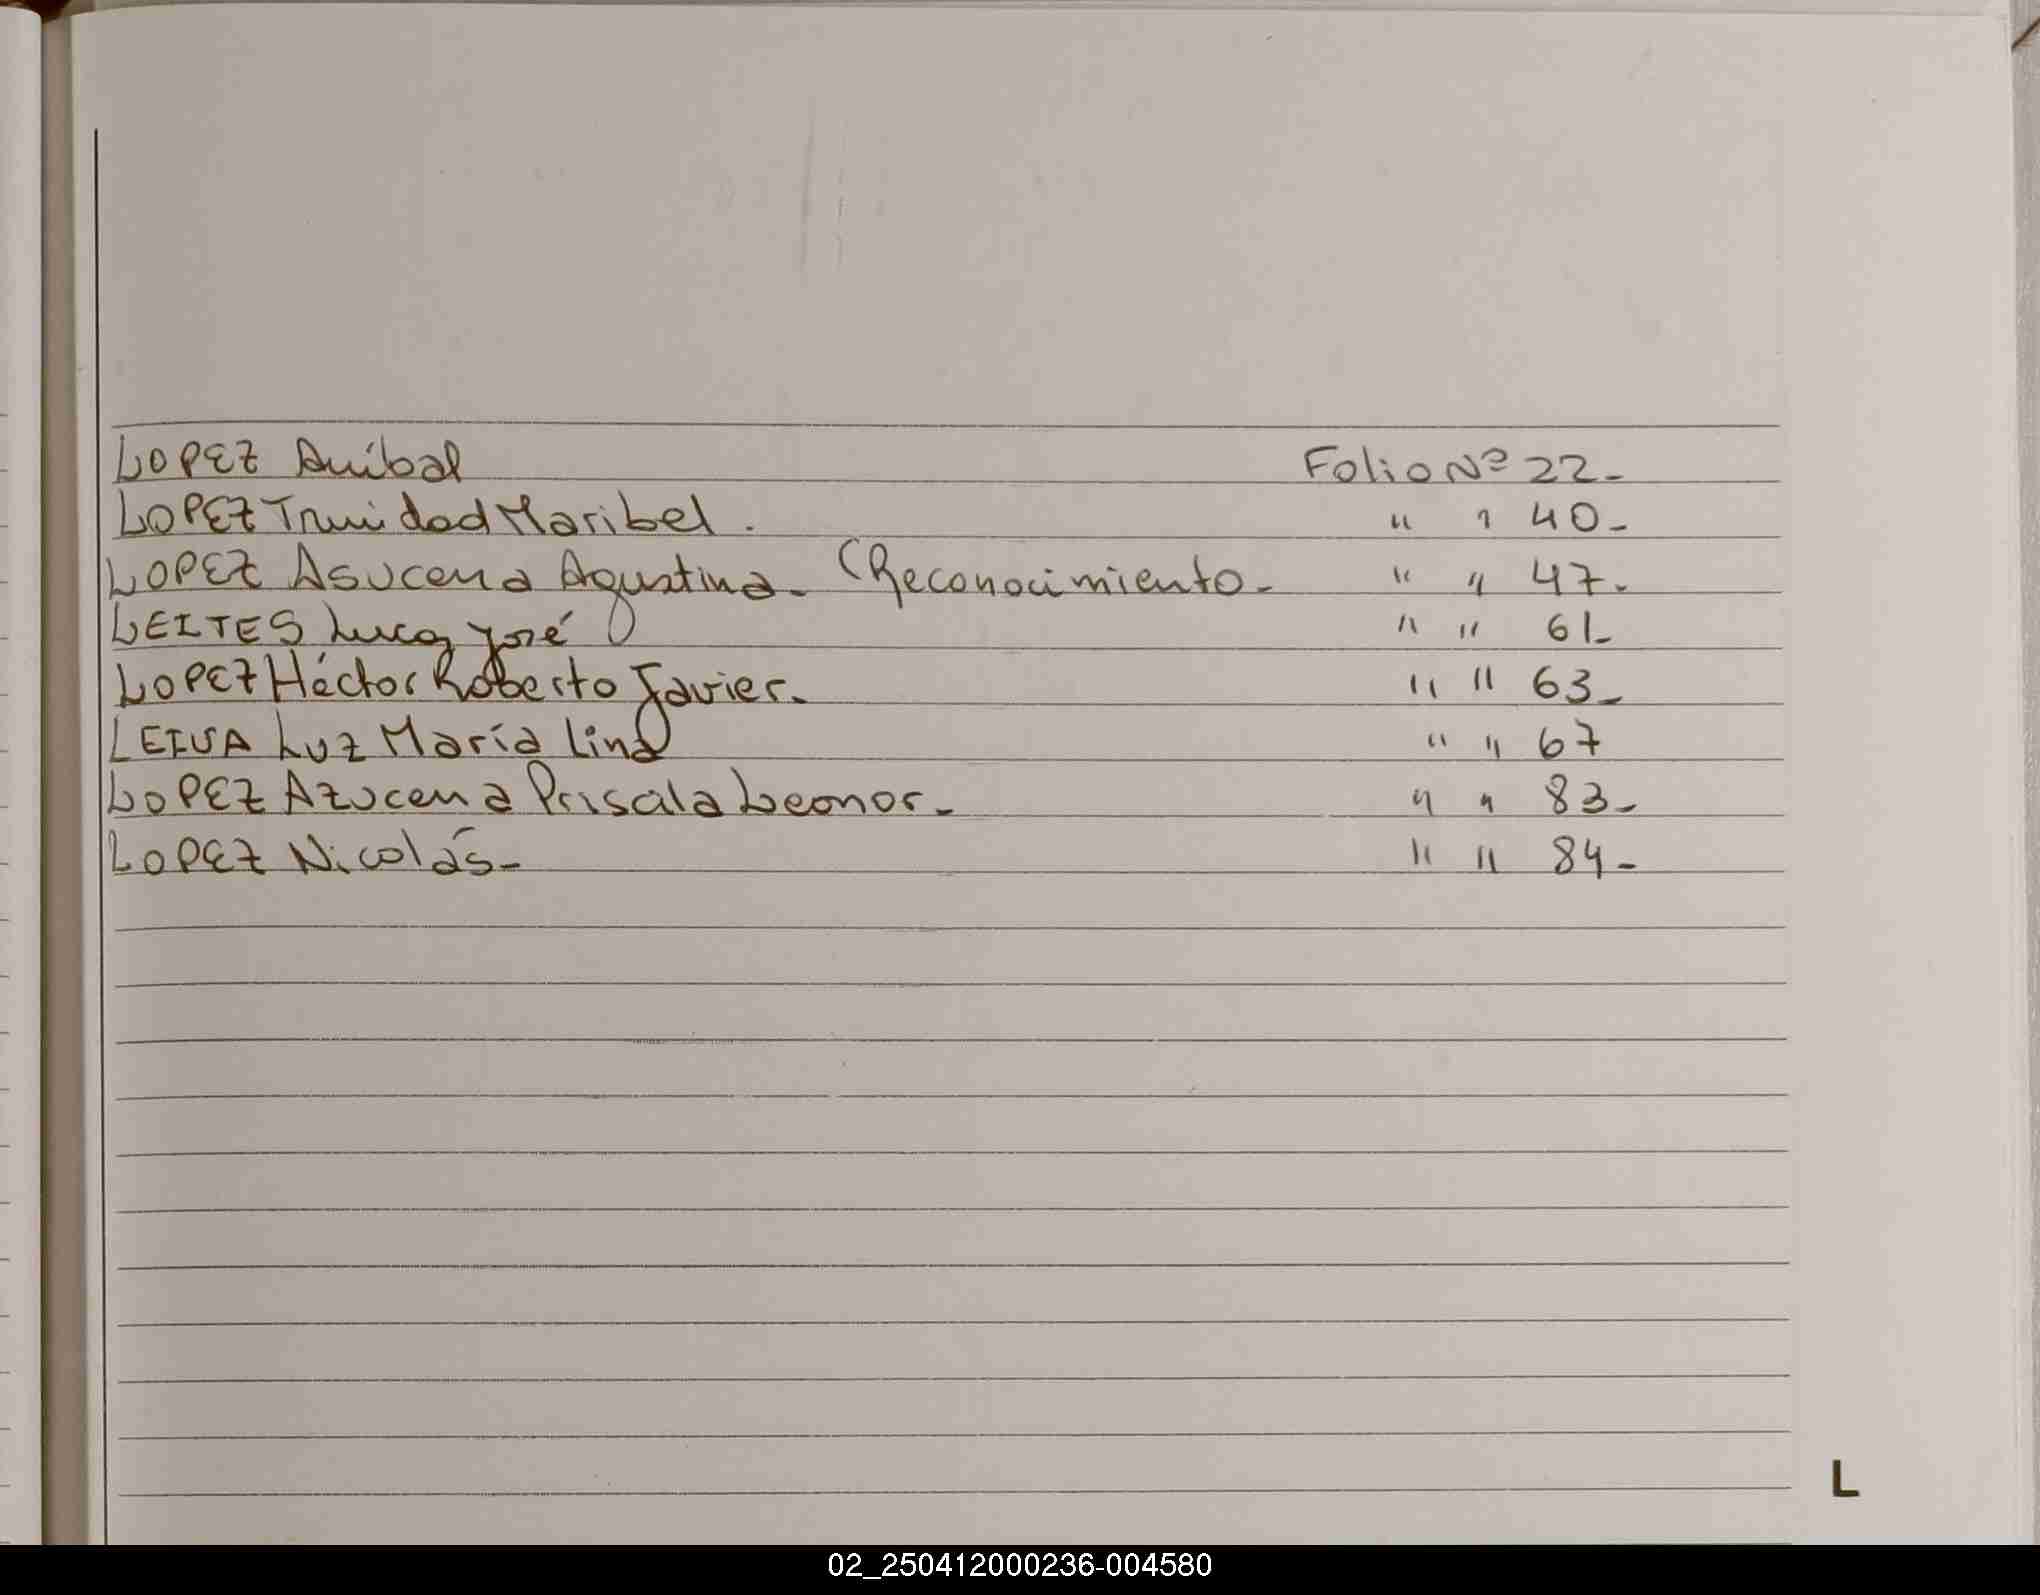 LOPEZ Aníbal Folio Nº 22-
LOPEZ Trinidad Maribel. " " 40-
LOPEZ Asucena Agustina- (Reconocimiento- " " 47-
LEITES Lucas José " " 61-
LOPEZ Héctor Roberto Javier- " " 63-
LEIVA Luz María Lina " " 67
LOPEZ Azucena Priscila Leonor- " " 83-
LOPEZ Nicolás- " " 84-
L
02_250412000236-004580